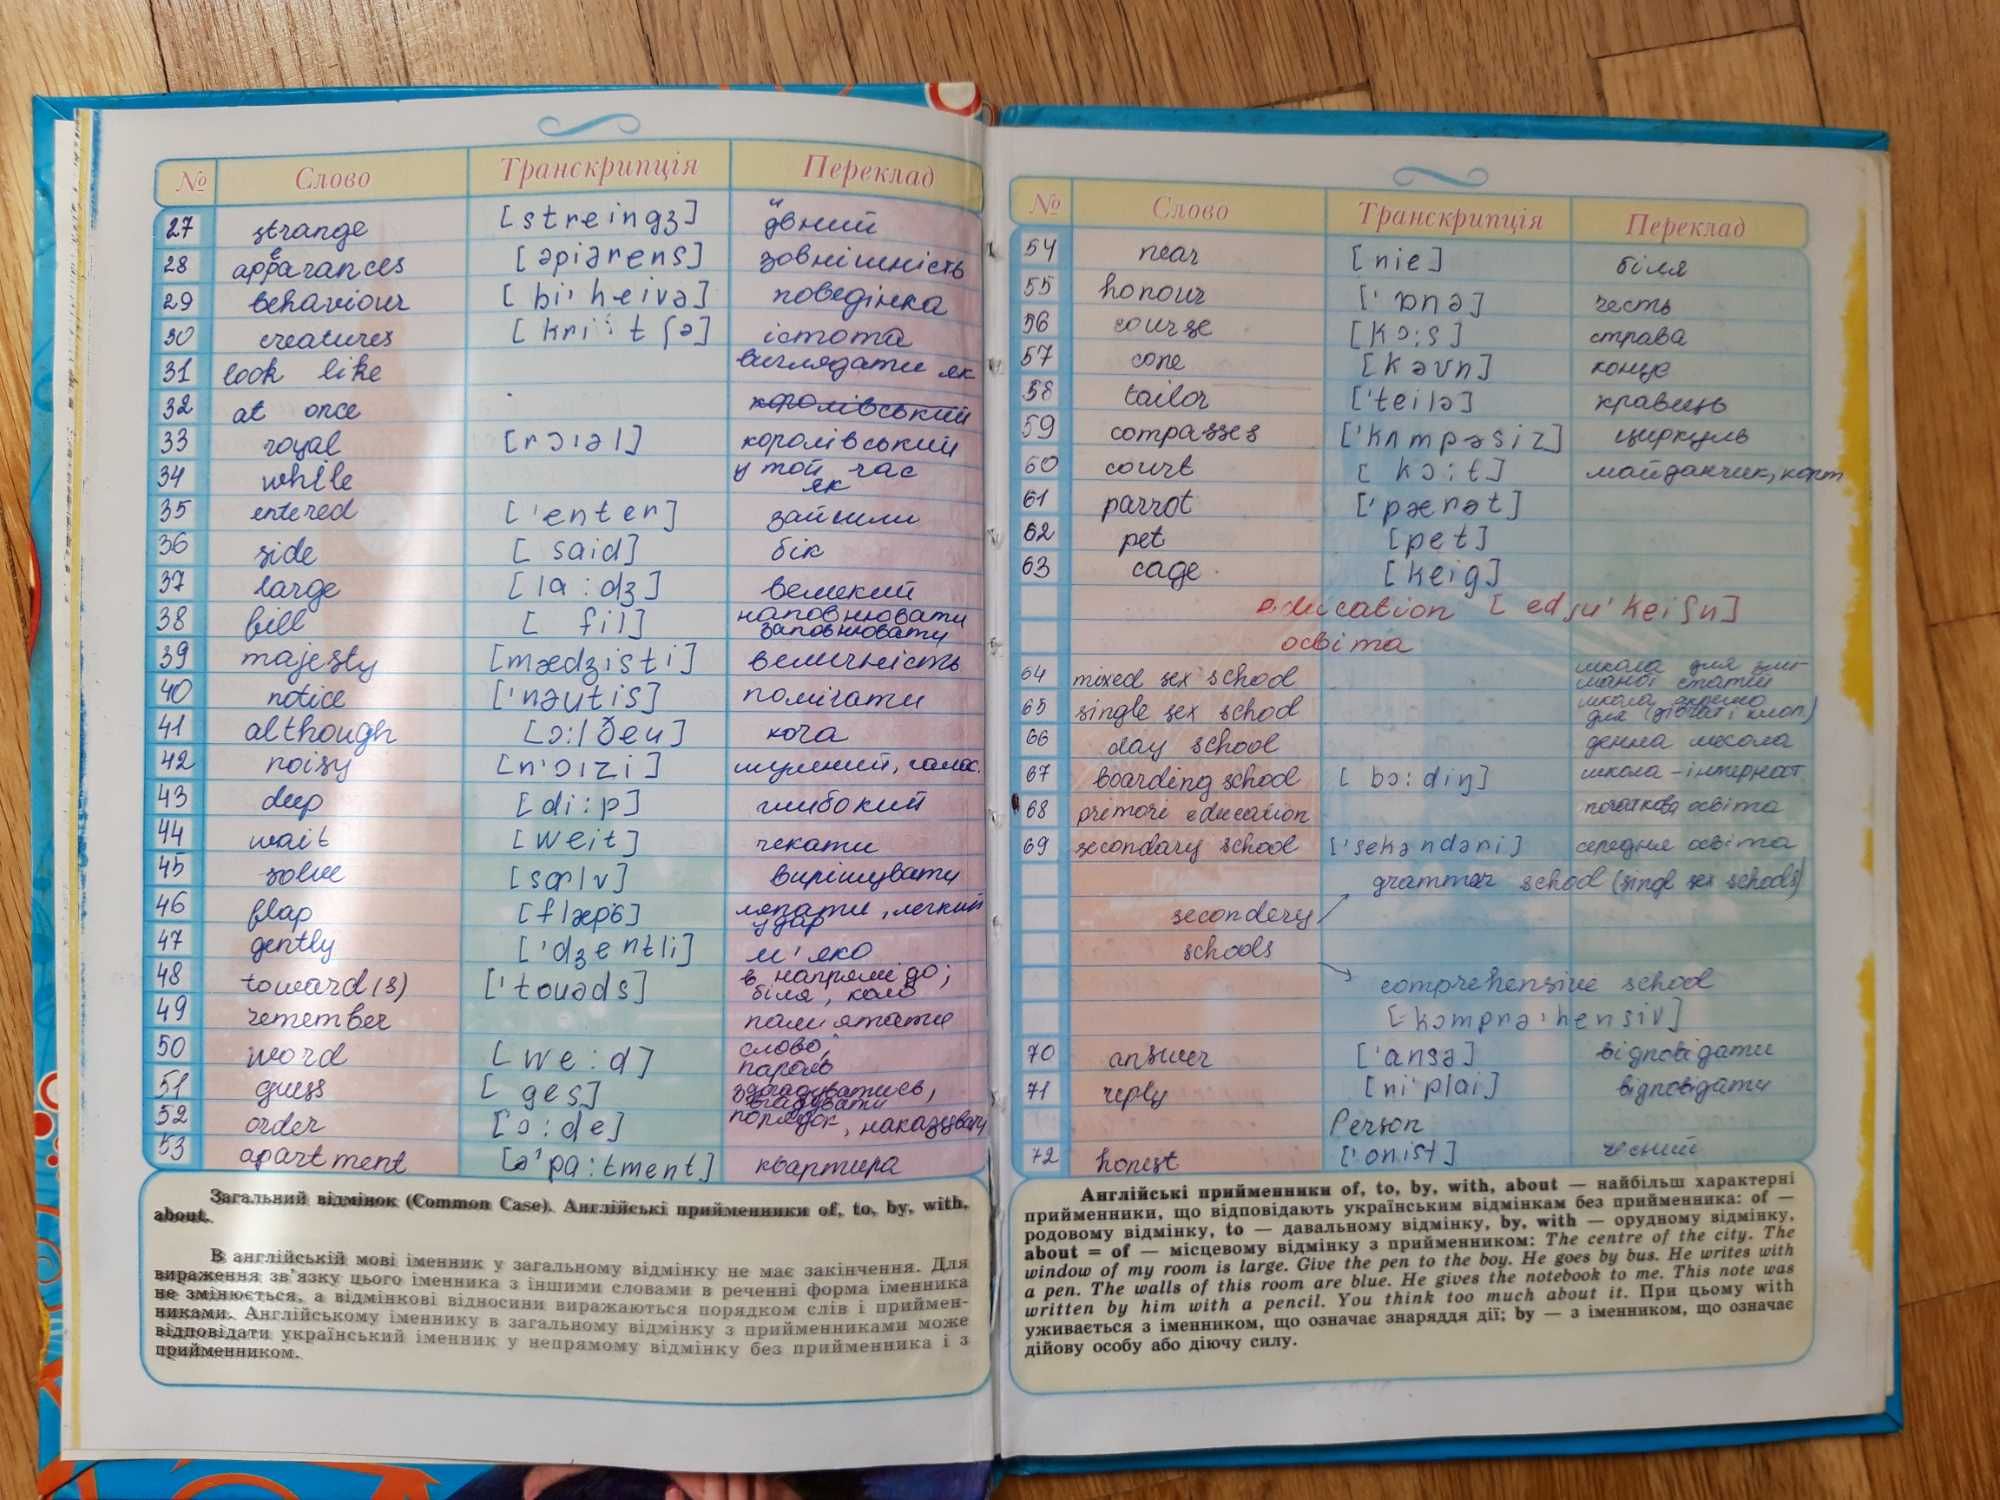 № Слово Транскрипція Переклад
27 strange [streingʒ] дивний
28 appearances [əpiərens] зовнішність
29 behaviour [bi'heivə] поведінка
30 creatures [kri:tʃə] істота
31 look like виглядати як
32 at once королівський
33 royal [rɔıəl] королівський
34 while у той час
як
35 entered ['enter] зайшли
36 side [said] бік
37 large [la:dʒ] великий
38 fill [fil] наповнювати
заповнювати
39 majesty [mædʒisti] величність
40 notice ['nəutis] помічати
41 although [ɔ:lðeu] хоча
42 noisy [n'ɔızi] шумний, галас.
43 deep [di:p] глибокий
44 wait [weit] чекати
45 solve [sɒlv] вирішувати
46 flap ляпати, легкий
удар
47 gently ['dʒentli] м'яко
48 toward(s) ['touəds] в напрямі до;
біля, коло
49 remember памятати
50 word [we:d] слово,
пароль
51 guess [ges] здогадуватись,
вгадувати
52 order [ɔ:de] порядок, наказувати
53 apartment [ə'pa:tment] квартира
Загальний відмінок (Common Case). Англійські прийменники of, to, by, with,
about.
В англійській мові іменник у загальному відмінку не має закінчення. Для
вираження зв'язку цього іменника з іншими словами в реченні форма іменника
не змінюється, а відмінкові відносини виражаються порядком слів і приймен-
никами. Англійському іменнику в загальному відмінку з прийменниками може
відповідати український іменник у непрямому відмінку без прийменника і з
прийменником.
№ Слово Транскрипція Переклад
54 near [nie] біля
55 honour ['ɒnə] честь
56 course [kɔ:s] страва
57 cone [kəʊn] конус
58 tailor ['teilə] кравець
59 compasses ['kʌmpəsiz] циркуль
60 court [kɔ:t] майданчик, корт
61 parrot ['pærət]
62 pet [pet]
63 cage [keig]
education [edju'keiʃn]
освіта
64 mixed sex school школа для змі-
шаної статті
65 single sex school школа окремо
для (дівчат і хлоп.)
66 day school денна школа
67 boarding school [bɔ:diŋ] школа-інтернат
68 primori education початкова освіта
69 secondary school ['sekəndəri] середня освіта
grammar school (singl sex schools)
secondery
schools
comprehensive school
[kɔmprə'hensiv]
70 answer ['ansə] відповідати
71 reply [ri'plai] відповідати
Person
72 honest ['onist] чесний
Англійські прийменники of, to, by, with, about — найбільш характерні
прийменники, що відповідають українським відмінкам без прийменника: of —
родовому відмінку, to — давальному відмінку, by, with — орудному відмінку,
about = of — місцевому відмінку з прийменником: The centre of the city. The
window of my room is large. Give the pen to the boy. He goes by bus. He writes with
a pen. The walls of this room are blue. He gives the notebook to me. This note was
written by him with a pencil. You think too much about it. При цьому with
уживається з іменником, що означає знаряддя дії; by — з іменником, що означає
дійову особу або діючу силу.